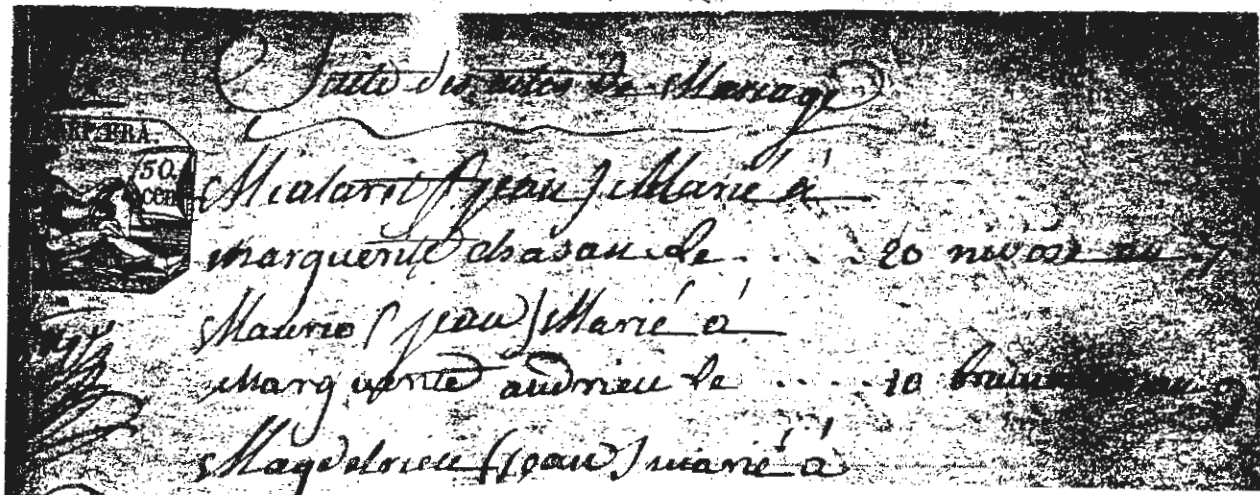 Suite des actes de Mariage
50
CEN
Mialaret (jean) Marié á
marguerite chasan le . . . . 20 nivose an 7
Maurio (jean) Marié á
Marguerite andrieu le . . . . 10 brumaire an 9
Magdelrieu (jean) marié á